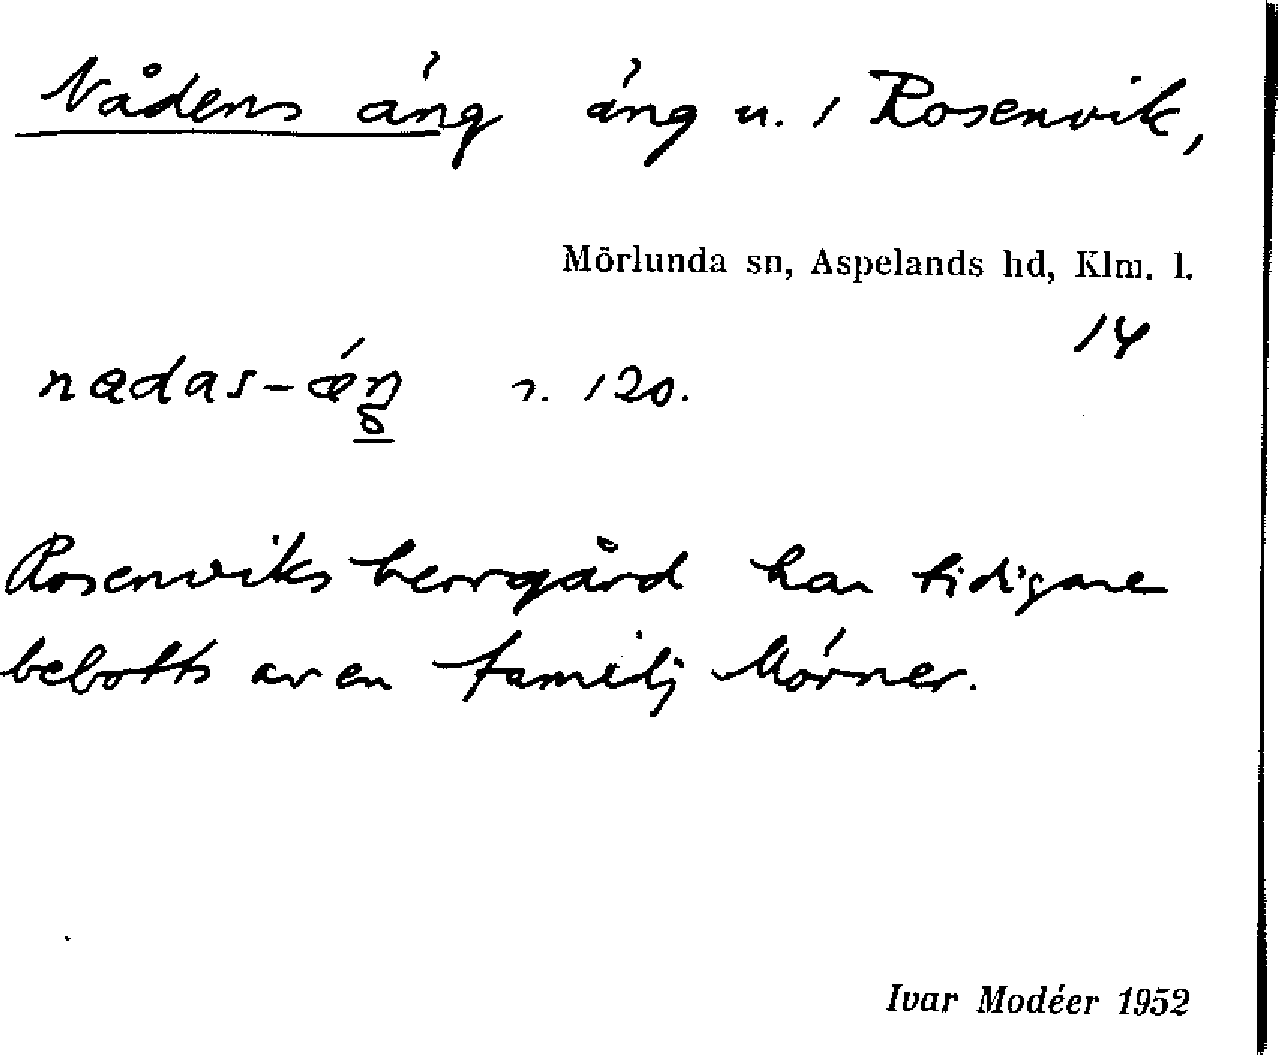 Nådens äng äng u. 1 Rosenvik,
Mörlunda sn, Aspelands hd, Klm. l.
14
120.
Rosenviks herrgård har tidigare
bebotts av en familj Mörner.
Ivar Modéer 1952